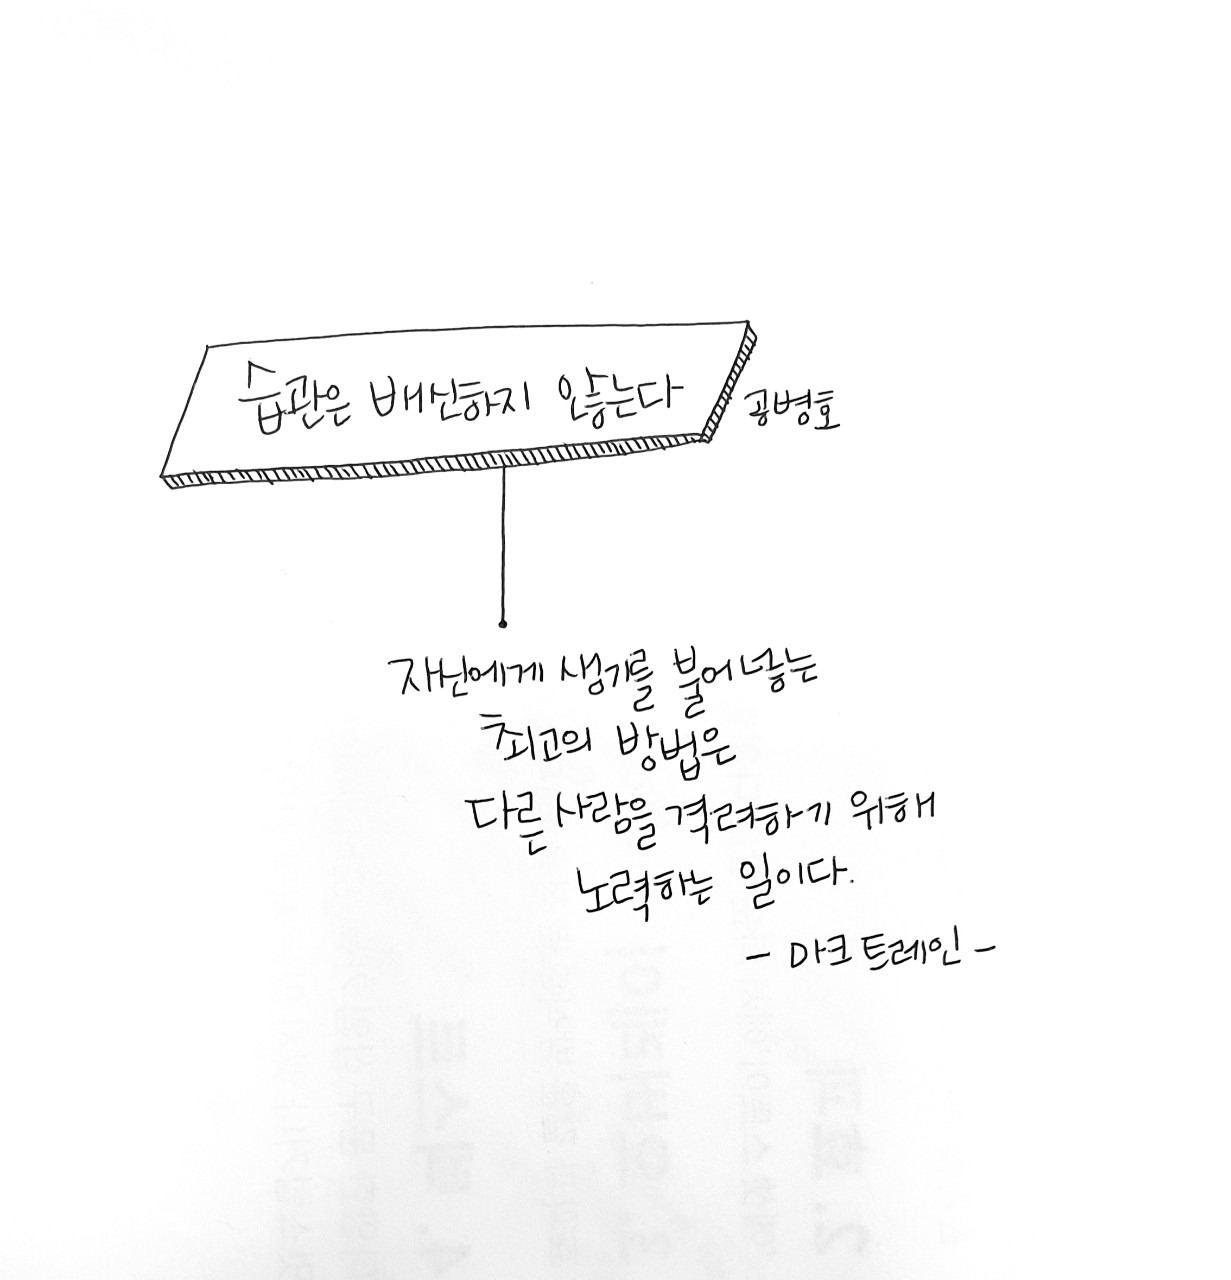 습관은 배신하지 않는다
공병호
자신에게 생기를 불어넣는
최고의 방법은
다른 사람을 격려하기 위해
노력하는 일이다.
- 마크 트레인 -